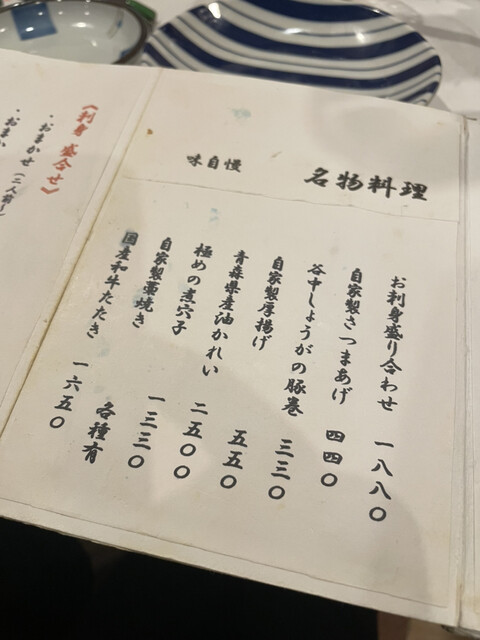 名物料理
味自慢
お刺身盛り合わせ 一八八〇
自家製さつまあげ 四四〇
谷中しょうがの豚巻 三三〇
自家製厚揚げ 五五〇
青森県産油かれい 二五〇〇
極めの煮穴子 一三三〇
自家製藁焼き 各種有
国産和牛たたき 一六五〇
《刺身 盛合せ》
・おまかせ(二人前)
・おまか